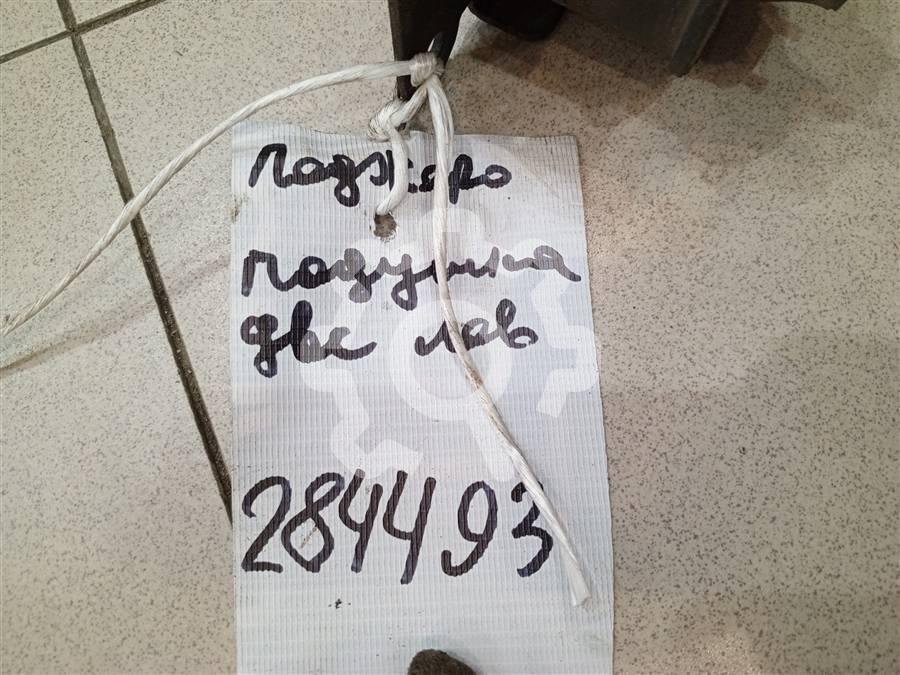 Паджеро
подушка
двс лев
284493